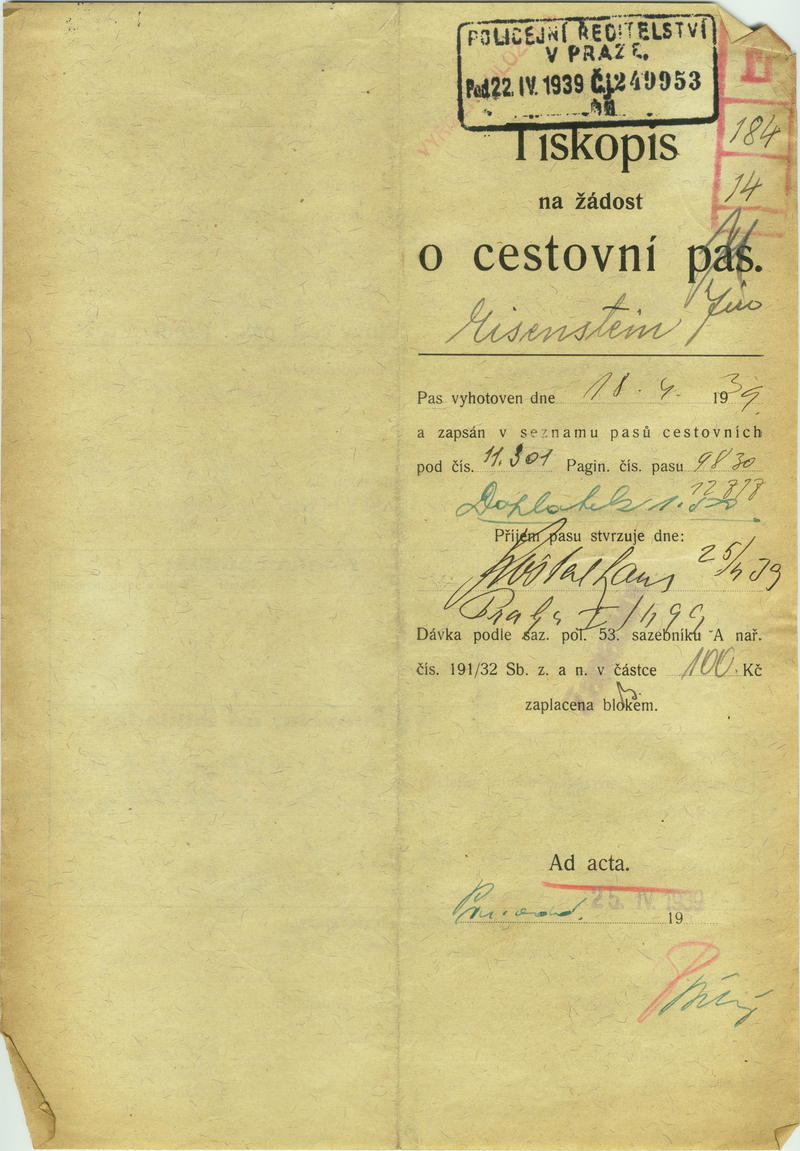 POLICEJNÍ ŘEDITELSTVÍ
V PRAZE.
Pod. 22. IV. 1939 Čj. 249953
184
14
Tiskopis
na žádost
o cestovní pas.
Eisenstein Jiří
Pas vyhotoven dne 18. 4. 1939.
a zapsán v seznamu pasů cestovních
pod čís. 11.301 Pagin. čís. pasu 9830
12878
Doplatek
Příjem pasu stvrzuje dne:
25/4 39
Praha I/499
Dávka podle saz. pol. 53. sazebníku A nař.
čís. 191/32 Sb. z. a n. v částce 100 Kč
zaplacena blokem.
Ad acta.
25. IV. 1939
19